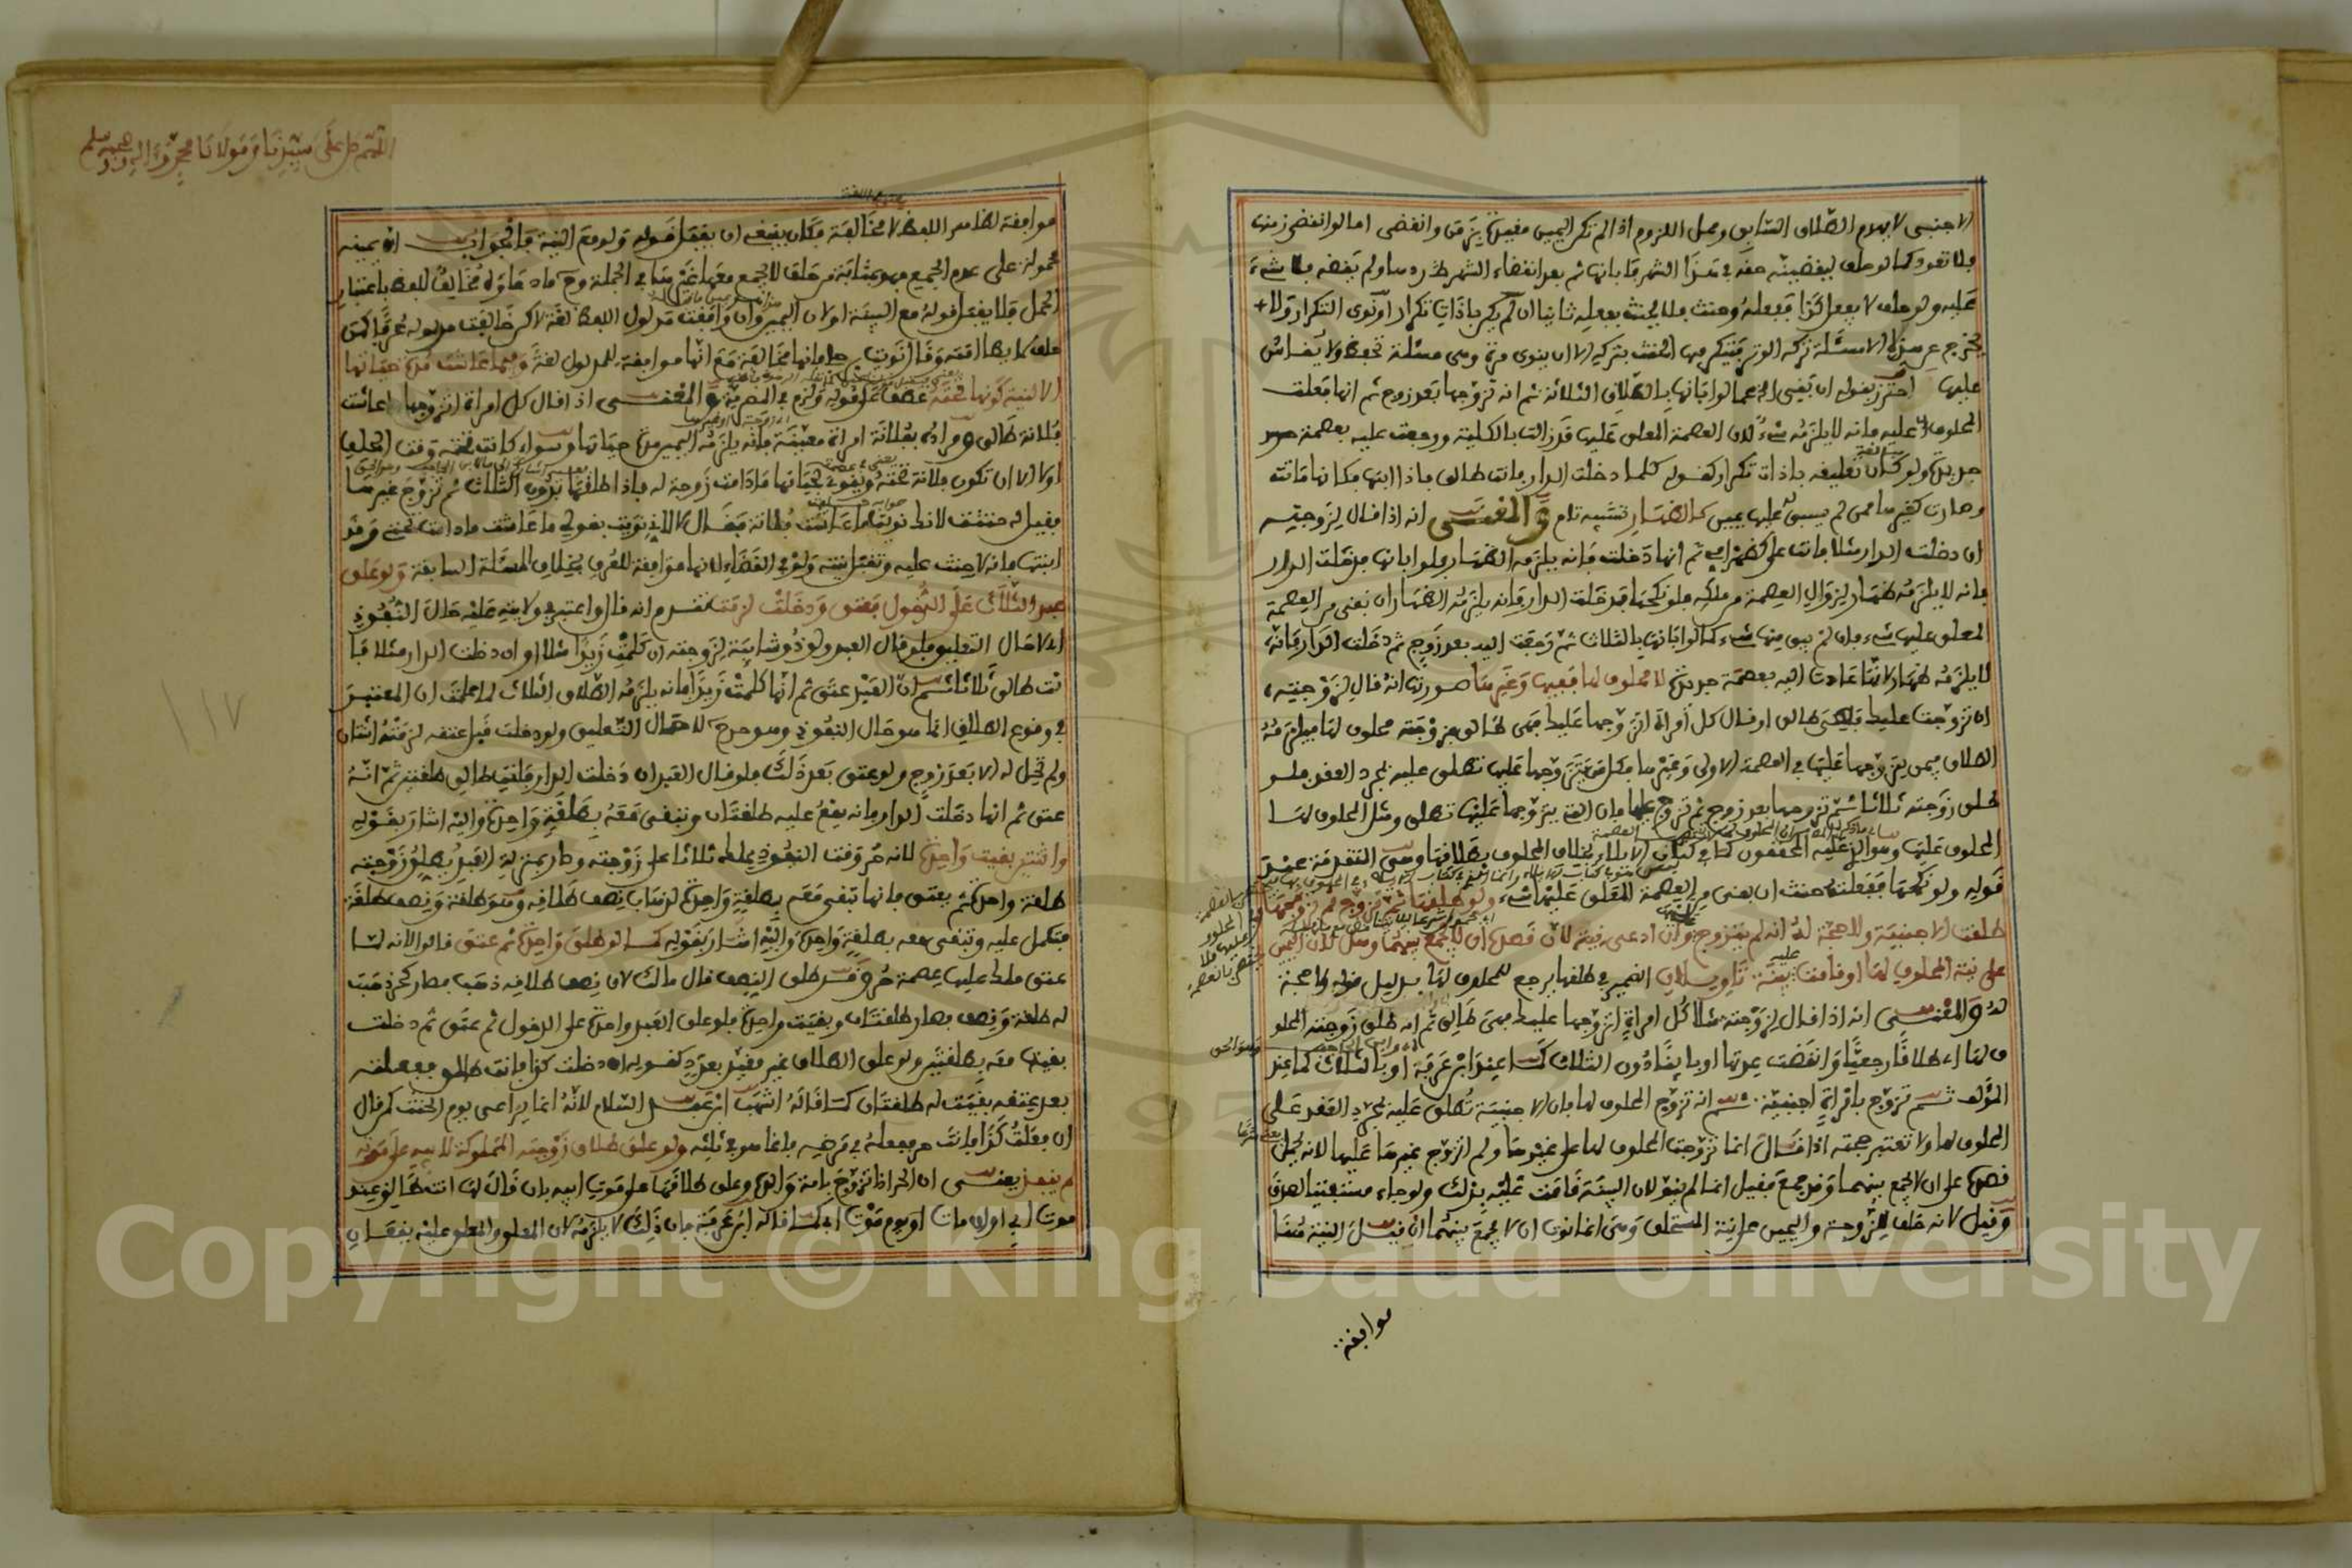 الاجنبي لا يهدم الطلاق السابق ومحل اللزوم اذا لم تكن اليمين مقيدة بزمن وانقضى اما لو انقضى زمنه
فلا تعود كما لو حلف ليقضينه حقه في هذا الشهر فابانها ثم بعد انقضاء الشهر ردها ولم يقضه فلا شيء
عليه ولو حلف لا يفعل كذا ففعله وحنث فلا يحنث بفعله ثانيا ان لم يكن باداة تكرار او نوى التكرار ولا
يخرج عن هذا الا مسئلة تركه الوتر فيتكرر فيها الحنث بتركه الا ان ينوي مرة وهي مسئلة تحفظ ولا يقاس
عليها احترز بقوله ان بقي الخ عما لو ابانها بالطلاق الثلاثة ثم انه تزوجها بعد زوج ثم انها فعلت
المحلوف عليه فانه لا يلزمه شيء لان العصمة المعلق عليها قد زالت بالكلية ورجعت عليه بعصمة
جديدة ولو كان تعليقه باداة تكرار كقوله كلما دخلت الدار فانت طالق فاذا ابتها فكانها ماتت
وصارت كغيرها ممن لم يسبق عليها يمين كالظهار تشبيه تام والمعنى انه اذا قال لزوجته
ان دخلت الدار مثلا فانت علي كظهر امي ثم انها دخلت فانه يلزمه الظهار فلو ابانها فدخلت الدار
فانه لا يلزمه ظهار لزوال العصمة من ملكه فلو نكحها فدخلت الدار فانه يلزمه الظهار ان بقي من العصمة
المعلق عليها شيء فان لم يبق منها شيء كما لو ابانها بالثلاث ثم رجعت اليه بعد زوج ثم دخلت الدار فانه
لا يلزمه ظهار لانها عادت اليه بعصمة جديدة لا محلوف لها ففيها وغيرها صورتها انه قال لزوجته
ان تزوجت عليك فهي طالق او قال كل امرأة اتزوجها عليك فهي طالق فزوجته محلوف لها فيلزمه
الطلاق فيمن يتزوجها عليها في العصمة الاولى وغيرها فكل من يتزوجها عليها تطلق عليه بمجرد العقد فلو
طلق زوجته ثلاثا ثم تزوجها بعد زوج ثم تزوج عليها فان التي يتزوجها عليها تطلق ومثل المحلوف لها
المحلوف عليها وهو الذي عليه المحققون كما في كتاب الايلاء بخلاف المحلوف بطلاقها وهي المتقدمة عند
قوله ولو نكحها ففعلته حنث ان بقي من العصمة المعلق عليها شيء ولو طلقها ثم تزوج ثم تزوجها
طلقت الاجنبية ولا حجة له انه لم يتزوج وان ادعى نية لان قصده ان لا يجمع بينهما وهل لان اليمين
على نية المحلوف لها او قامت عليه بينة تاويلان الضمير في طلقها يرجع للمحلوف لها بدليل قوله ولا حجة
له والمعنى انه اذا قال لزوجته مثلا كل امرأة اتزوجها عليك فهي طالق ثم انه طلق زوجته المحلو
ف لها اي طلاقا رجعيا وانقضت عدتها او باينا دون الثلاث كما عند ابن عرفة او بالثلاث كما عند
المؤلف ثم تزوج بامرأة اجنبية ثم انه تزوج المحلوف لها فان الاجنبية تطلق عليه بمجرد العقد على
المحلوف لها ولا تعتبر حجته اذا قال انما تزوجت المحلوف لها على غيرها ولم اتزوج غيرها عليها لانه يحمل
قصده على ان لا يجمع بينهما وقد جمع فقيل انما لم ينو لان البينة قامت عليه بذلك ولو جاء مستفتيا لصدق
وقيل لانه حلف للزوجة واليمين على نية المستحلف وهي انما نوت ان لا يجمع بينهما ان قيل النية هنا
موافقة
اللهم صل على سيدنا ومولانا محمد واله وصحبه وسلم
موافقة لظاهر اللفظ لا مخالفة فكان ينبغي ان يقبل قوله ولو مع البينة فالجواب ان يمينه
محمولة على عدم الجمع فهو بمثابة من حلف لا اجمع معها غيرها في الجملة وح فادعاؤه مخالف للفظ باعتبار
الحمل فلا يقبل قوله مع البينة او لان اليمين وان وافقت مدلول اللفظ لغة لاكن خالفت مدلوله عرفا كمن
الا لنية كونها تحته عطف على قوله ولزم في المصرية والمعنى اذا قال كل امرأة اتزوجها ما عاشت
فلانة طالق ومراده بفلانة امرأة معينة فانه يلزمه اليمين مدة حياتها وسواء كانت تحته وقت الحلف
او لا الا ان تكون فلانة تحته ونوى بحياتها ما دامت زوجة له فاذا طلقها بدون الثلاث ثم تزوج غيرها
فقيل له حنثت لانك نويت ما عاشت فلانة فقال لا اني نويت بقولي ما عاشت ما دامت تحتي وقد
ابنتها فانه لا حنث عليه وتقبل نيته ولو في القضاء لانها موافقة للعرف بخلاف المسئلة السابقة ولو علق
عبد الثلاث على الدخول فعتق ودخلت لزمت تقدم انه قال واعتبر في ولايته عليه حال النفوذ
اي لا حال التعليق فلو قال العبد ولو ذو شائبة لزوجته ان كلمت زيدا مثلا او ان دخلت الدار مثلا فا
نت طالق ثلاثا ثم ان العبد عتق ثم انها كلمت زيدا فانه يلزمه الطلاق الثلاث لما علمت ان المعتبر
في وقوع الطلاق انما هو حال النفوذ وهو حر ح لا حال التعليق ولو دخلت قبل عتقه لزمته اثنتان
ولم تحل له الا بعد زوج ولو عتق بعد ذلك فلو قال العبد ان دخلت الدار فانت طالق طلقتين ثم انه
عتق ثم انها دخلت الدار فانه يقع عليه طلقتان وتبقى معه بطلقة واحدة واليه اشار بقوله
واثنتين بقيت واحدة لانه حر وقت النفوذ يملك ثلاثا على زوجته وصار بمنزلة العبد يطلق زوجته
طلقة واحدة ثم يعتق فانها تبقى معه بطلقة واحدة لذهاب نصف طلاقه وهو طلقة ونصف طلقة
فتكمل عليه وتبقى معه بطلقة واحدة واليه اشار بقوله كما لو طلق واحدة ثم عتق قالوا لانه لما
عتق ملك عليها عصمة حر وقد طلق النصف قال مالك لان نصف طلاقه ذهب فصار كحر ذهب
له طلقة ونصف فصار طلقتان وبقيت واحدة فلو علق العبد واحدة على الدخول ثم عتق ثم دخلت
بقيت معه بطلقتين ولو علق الطلاق غير مقيد بعدد كقوله ان دخلت كذا فانت طالق ففعلته
بعد عتقه بقيت له طلقتان كما قاله اشهب ابن عبد السلام لانه انما يراعى يوم الحنث كمن قال
ان فعلت كذا فانت حر ففعله في مرضه فانما هو في ثلثه ولو علق طلاق زوجته المملوكة لابيه على موته
لم ينفذ يعني ان الحر اذا تزوج بامة والده وعلق طلاقها على موت ابيه بان قال لها انت طالق عند
موت ابي او ان مات او يوم موت ابي كما قاله ابن عرفة فان ذلك لا يلزمه لان المعلق والمعلق عليه يقعان
١١٧